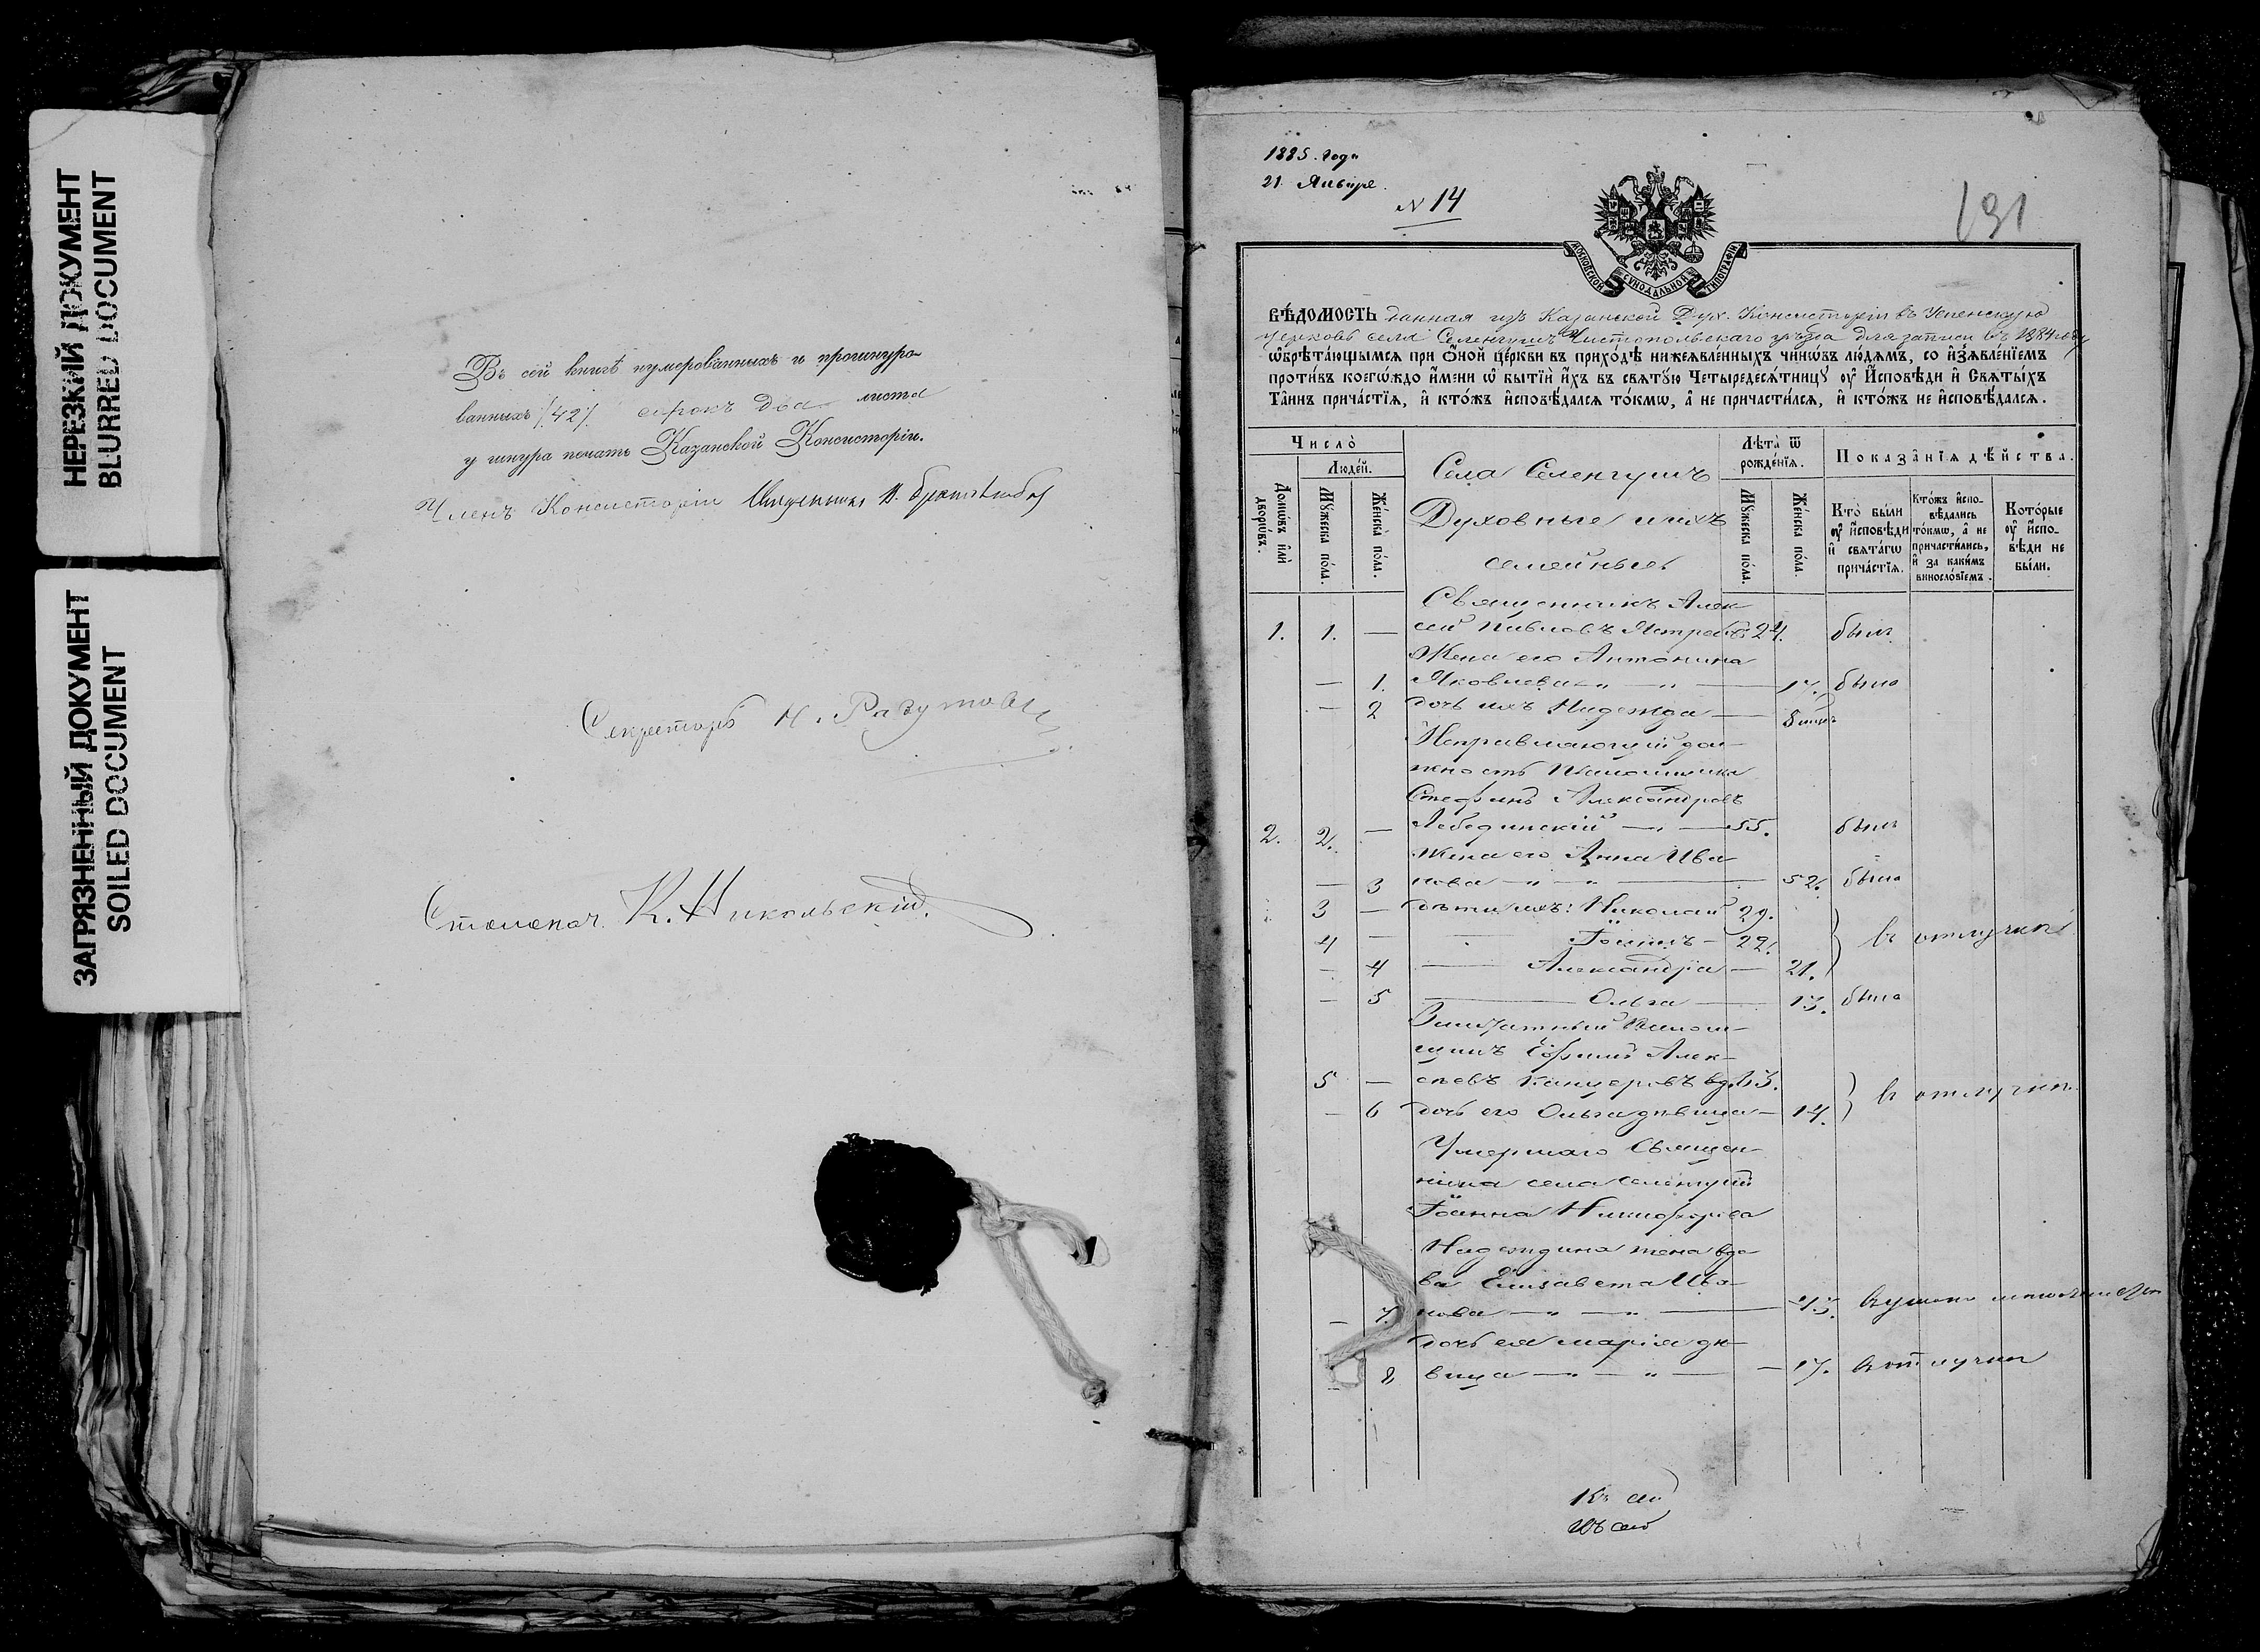 НЕРЕЗКИЙ ДОКУМЕНТ
BLURRED DOCUMENT
ЗАГРЯЗНЕННЫЙ ДОКУМЕНТ
SOILED DOCUMENT
Въ сей книгѣ нумерованныхъ и прошнуро-
ванныхъ /42/. сорокъ два листа
у шнура печать Казанской Консисторіи.
Членъ Консисторіи Священникъ
Секретарь
Столонач. К. Никольскій
1885. года
21 Января.
№ 14
131
МОСКОВСКОЙ СѴНОДАЛЬНОЙ ТИПОГРАФІИ
ВѢ́ДОМОСТЬ данная изъ Казанской Дух. Консисторіи въ Успенскую
Церковь села Селенгушъ Чистопольскаго уѣзда для записи въ 1884 году
ѡ҆брѣта́ющымсѧ при ѻ҆́ной це́ркви въ прихо́дѣ нижеѧвле́нныхъ чинѡ́въ лю́дѧмъ, со и҆з̾ѧвле́нїемъ
проти́въ коегѡ́ждо и҆́мени ѡ҆ бытїѝ и҆́хъ въ свѧту́ю Четыредесѧ́тницу оу҆ И҆сповѣ́ди и҆ Свѧты́хъ
Та̑инъ прича́стїѧ, и҆ кто́жъ и҆сповѣ́далсѧ то́кмѡ, а҆ не причасти́лсѧ, и҆ кто́жъ не и҆сповѣ́далсѧ.
Число̀
Люде́й.
Домѡ́въ и҆лѝ дворѡ́въ.
Му́жеска по́ла.
Же́нска по́ла.
Села Селенгушъ
Духовные и ихъ
семейные
Лѣ́та ѿ рожде́нїѧ.
Му́жеска по́ла.
Же́нска по́ла.
Показа̑нїѧ дѣ́йства.
Кто̀ бы́ли оу҆ и҆сповѣ́ди и҆ свѧта́гѡ прича́стїѧ.
Кто́жъ и҆спо-вѣ́дались то́кмѡ, а҆ не причасти́лись, и҆ за каки́мъ винослові́емъ.
Кото́рые оу҆ и҆спо-вѣ́ди не бы́ли.
Священникъ Алек-
1. 1. — сѣй Павловъ Ястребовъ 24. былъ
Жена его Антонина
— 1. Яковлева — „ — „ — 17. была
— 2 дочь ихъ Надежда —
Исправляющій дол-
жность Псаломщика
Стефанъ Александровъ
2. 2. — Лебединскій — „ — 55. былъ
жена его Анна Ива
— 3 нова — „ — „ — 52. была
3 — дѣти ихъ: Николай 29.
4 — Іоаннъ — 22. въ отлучкѣ
— 4 — Александра — 21.
— 5 — Ольга — 13. была
Заштатный Псалом-
щикъ Ефимій Алек-
5 — сѣевъ вд. 43.
— 6 дочь его Ольга дѣвица — 14. въ отлучкѣ
Умершаго Священ-
ника села Селенгушъ
Іоанна Никифорова
Надеждина жена вдо-
ва Елизавета Ива-
— 7. нова — „ — „ —
дочь ея Марія дѣ-
— 8 вица — „ — „ — 17. въ отлучкѣ